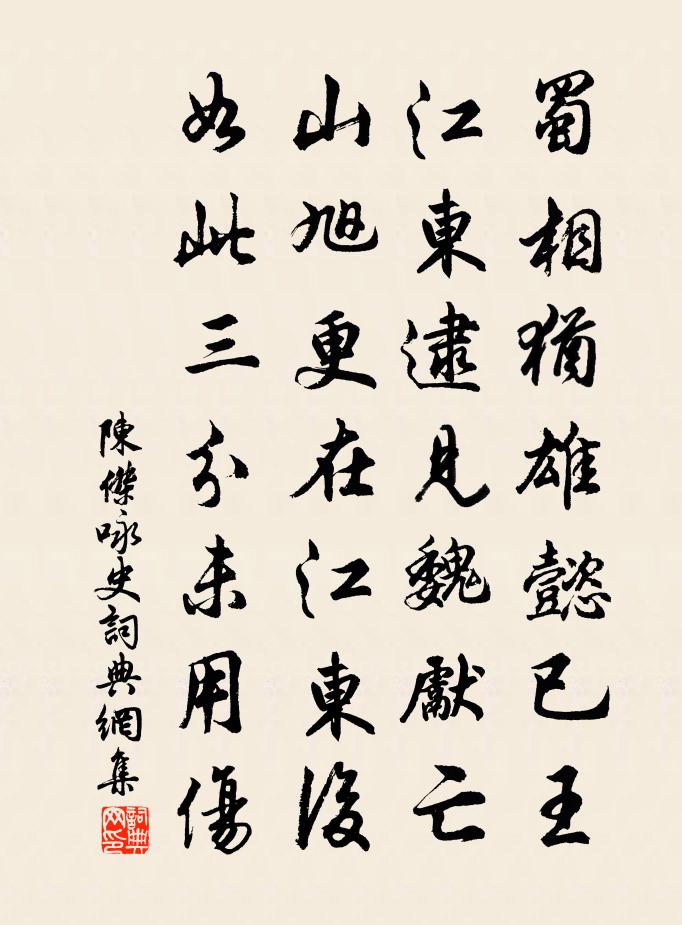 蜀相猶雄懿已王
江東逮見魏獻亡
山旭更在江東後
如此三分未用傷
陳傑咏史詞典網集
詞典网印